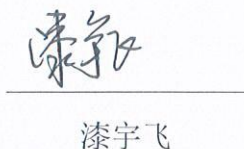 漆宇飞
漆宇飞